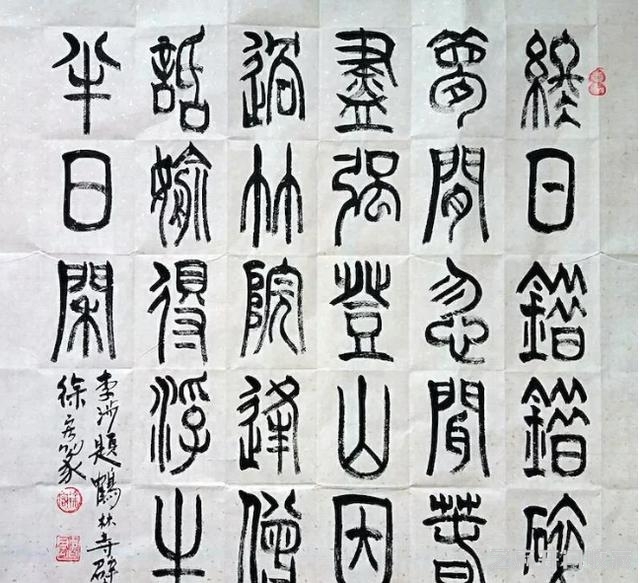 終日錯錯碎
夢間忽聞春
盡強登山因
過竹院逢僧
話媮得浮生
半日閑
李涉題鶴林寺
徐 篆